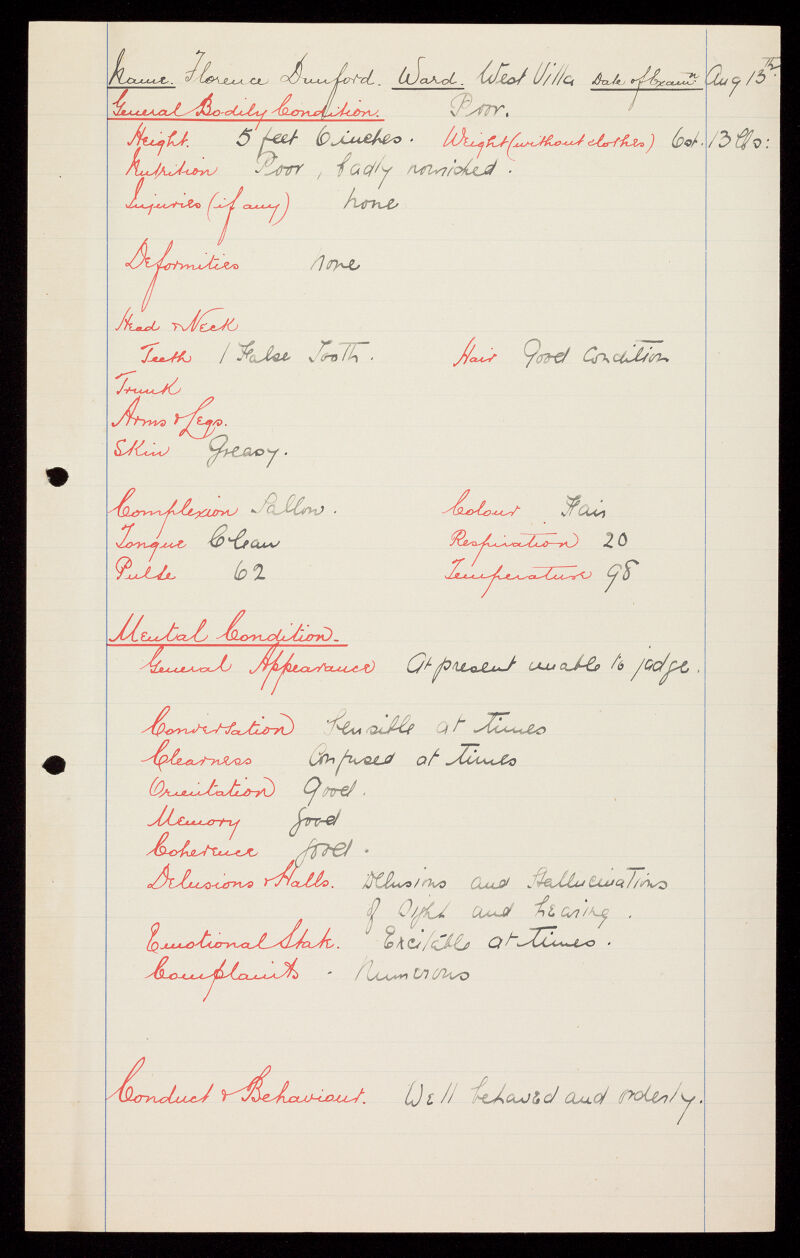 Name. Florence Dunford. Ward. West Villa Date of Examn Aug 13th.
General Bodily Condition. Poor.
Height. 5 feet 6 inches. Weight (without clothes) 6st. 13 lbs:
Nutrition Poor, badly nourished.
Injuries (if any) none
Deformities none
Head & Neck
Teeth 1 False Tooth. Hair Good Condition
Trunk
Arms & Legs.
Skin Greasy.
Complexion Sallow. Colour Fair
Tongue Clean Respiration 20
Pulse 62 Temperature 98
Mental Condition.
General Appearance At present unable to judge.
Conversation Sensible at times
Clearness Confused at times
Orientation Good.
Memory Good
Coherence Good.
Delusions & Halls. Delusions and Hallucinations
of Sight and hearing.
Emotional State. Excitable at times.
Complaints. Numerous
Conduct & Behaviour. Well behaved and orderly.